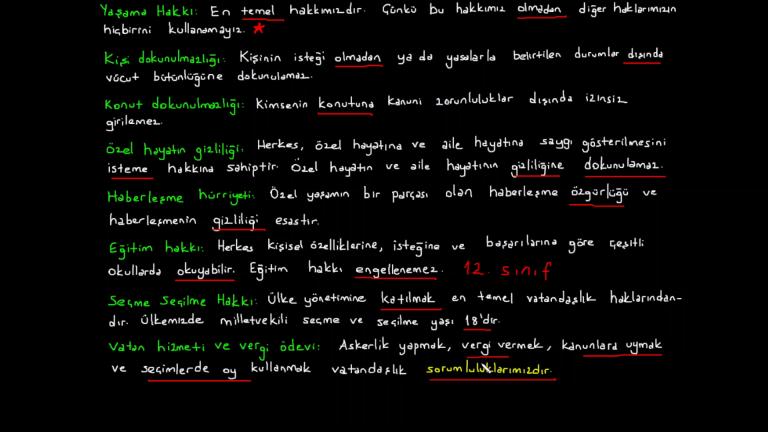 Yaşama Hakkı: En temel hakkımızdır. Çünkü bu hakkımız olmadan diğer haklarımızın
hiçbirini kullanamayız. ★
Kişi dokunulmazlığı: Kişinin isteği olmadan ya da yasalarla belirtilen durumlar dışında
vücut bütünlüğüne dokunulamaz.
Konut dokunulmazlığı: Kimsenin konutuna kanuni zorunluluklar dışında izinsiz
girilemez.
Özel hayatın gizliliği: Herkes, özel hayatına ve aile hayatına saygı gösterilmesini
isteme hakkına sahiptir. Özel hayatın ve aile hayatının gizliliğine dokunulamaz.
Haberleşme hürriyeti: Özel yaşamın bir parçası olan haberleşme özgürlüğü ve
haberleşmenin gizliliği esastır.
Eğitim hakkı: Herkes kişisel özelliklerine, isteğine ve başarılarına göre çeşitli
okullarda okuyabilir. Eğitim hakkı engellenemez. 12. sınıf
Seçme Seçilme Hakkı: Ülke yönetimine katılmak en temel vatandaşlık haklarından-
dır. Ülkemizde milletvekili seçme ve seçilme yaşı 18'dir.
Vatan hizmeti ve vergi ödevi: Askerlik yapmak, vergi vermek, kanunlara uymak
ve seçimlerde oy kullanmak vatandaşlık sorumluluklarımızdır.